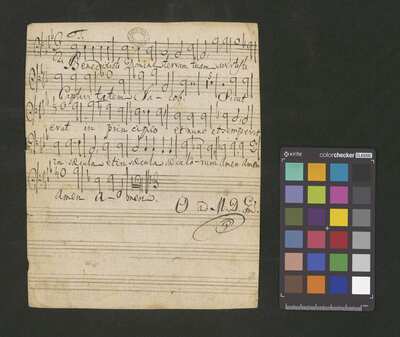 T.
Benedixisti Domine terram tuam avertisti
Captivitatem Jacob. Sicut
erat in principio et nunc et semper et
in sæcula et in sæcula sæculorum amen amen
amen a- men
O. A. M. D. G.
x-rite colorchecker CLASSIC